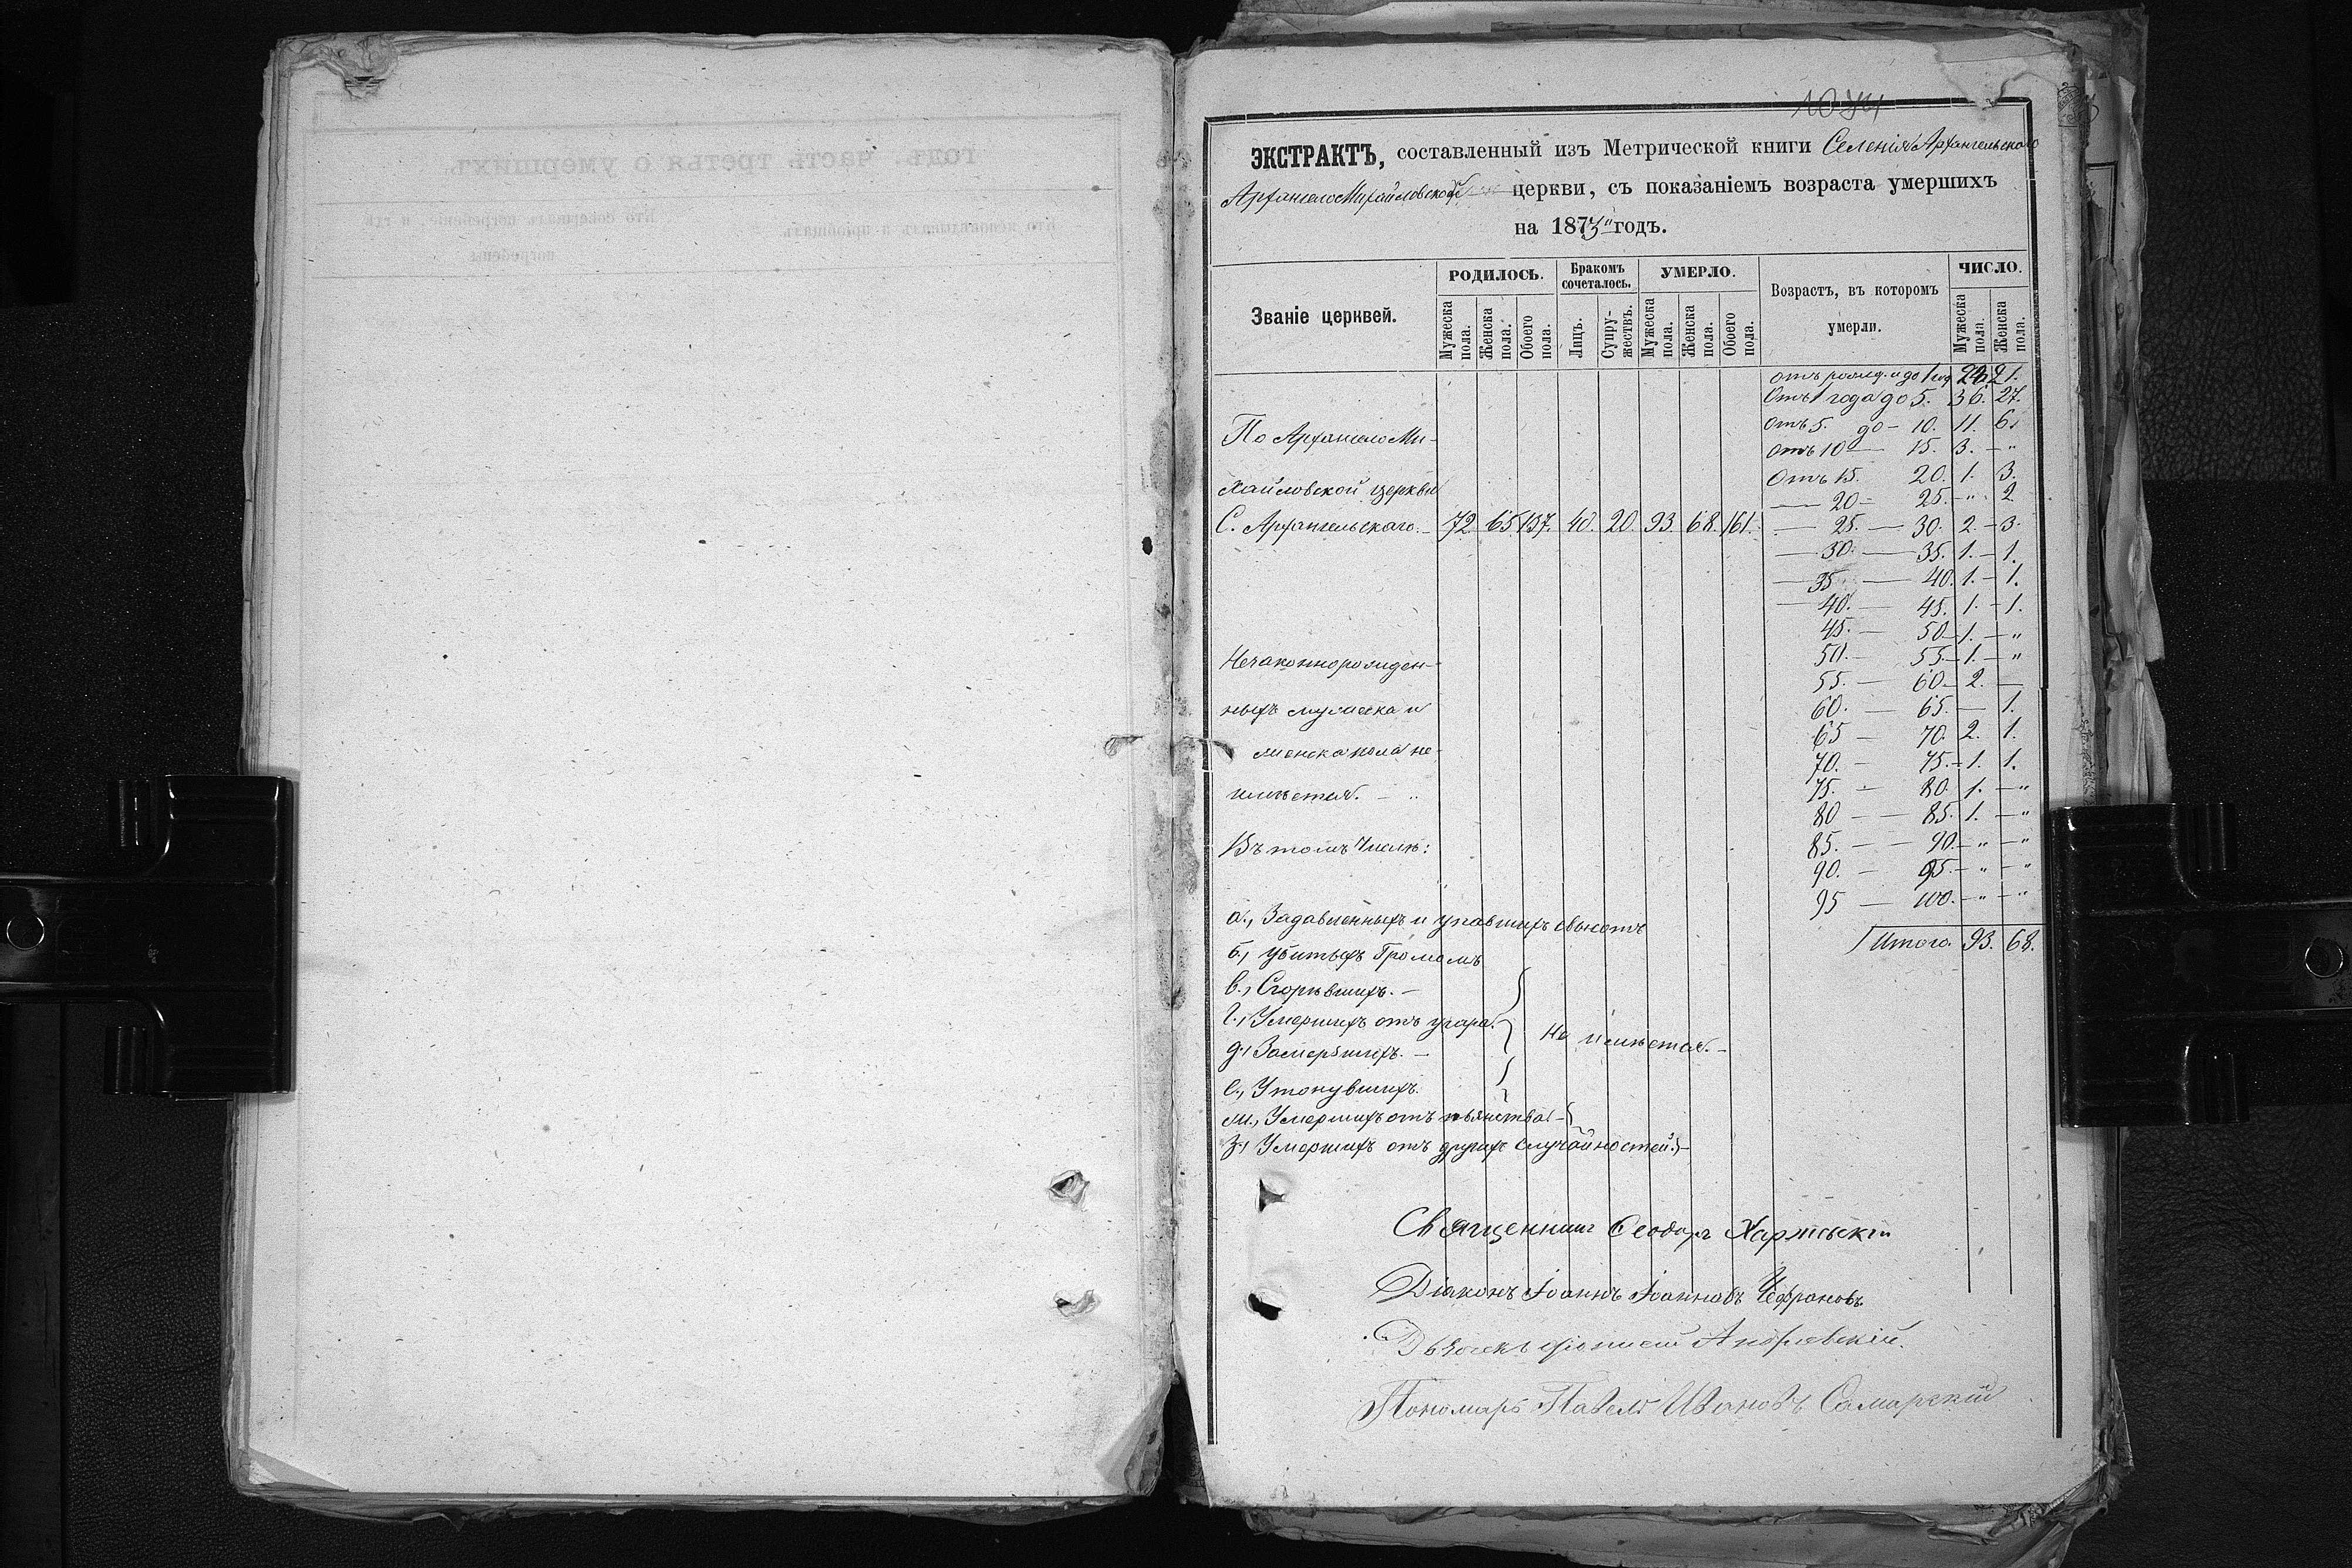 ЭКСТРАКТЪ, составленный изъ Метрической книги Селенія Архангельскаго
Архангело Михайловской церкви, съ показаніемъ возраста умершихъ
на 1873 годъ.
Званіе церквей.
РОДИЛОСЬ.
Бракомъ сочеталось.
УМЕРЛО.
Возрастъ, въ которомъ умерли.
ЧИСЛО.
Мужеска пола. Женска пола. Обоего пола. Лицъ. Супружествъ. Мужеска пола. Женска пола. Обоего пола. Мужеска пола. Женска пола.
По Архангело Ми-
хайловской церкви
С. Архангельскаго. 72. 65. 137. 40. 20. 93. 68. 161.
Незаконнорожден-
ныхъ мужеска и
женска пола не
имѣется. - "
Въ томъ числѣ:
а., Задавленныхъ и упавшихъ съ высотъ
б., Убитыхъ Громомъ
в., Сгорѣвшихъ. -
г., Умершихъ отъ угара.
Не имѣется. -
д., Замерзшихъ. -
е., Утонувшихъ.
ж., Умершихъ отъ пьянства -
з., Умершихъ отъ другихъ случайностей -
отъ рожд. и до 1 год 21.
Отъ 1 года до 5. 36. 27.
отъ 5. до - 10. 11. 6.
отъ 10 — 15. 3. - "
Отъ 15. 20. 1. 3.
— 20 - 25. - " 2
— 25. — 30. 2. - 3.
— 30. — 35. 1. - 1.
— 35 — 40. 1. - 1.
— 40. — 45. 1. - 1.
45. — 50 - 1. - "
50. - 55. - 1. - "
55. — 60. - 2. —
60. — 65. — 1.
65 — 70. 2. 1.
70. - 75. - 1. 1.
75. - 80. 1. - "
80 — 85. 1. - "
85. — 90. - " - "
90. - 95. - " - "
95 — 100. - " - "
Итого 93. 68.
Священникъ Ѳеодоръ
Діаконъ Іоаннъ Іоанновъ Чефрановъ
Дьячекъ
Пономарь Павелъ Ивановъ Самарскій